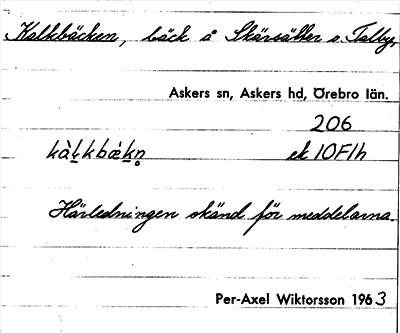 Kalkbäcken, bäck å Skärsätter o. Talby,
Askers sn, Askers hd, Örebro län.
206
kàḷkbækn̥ ek 10F1h
Härledningen okänd för meddelarna.
Per-Axel Wiktorsson 1963